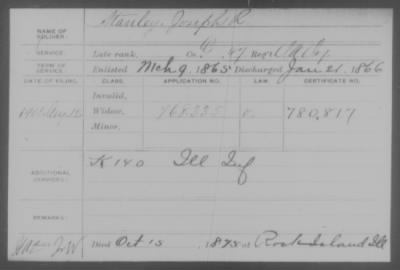 NAME OF SOLDIER: Stanley, Joseph R
SERVICE: Late rank, Co. 47 Reg't
TERM OF SERVICE: Enlisted Mch 9, 1865 Discharged Jan 21, 1866
DATE OF FILING. CLASS. APPLICATION NO. LAW. CERTIFICATE NO.
Invalid,
Widow, 968.225 780,817
Minor,
ADDITIONAL SERVICES: K 140 Ill Inf
REMARKS:
Died Oct 15, 1895 at Rock Island Ill